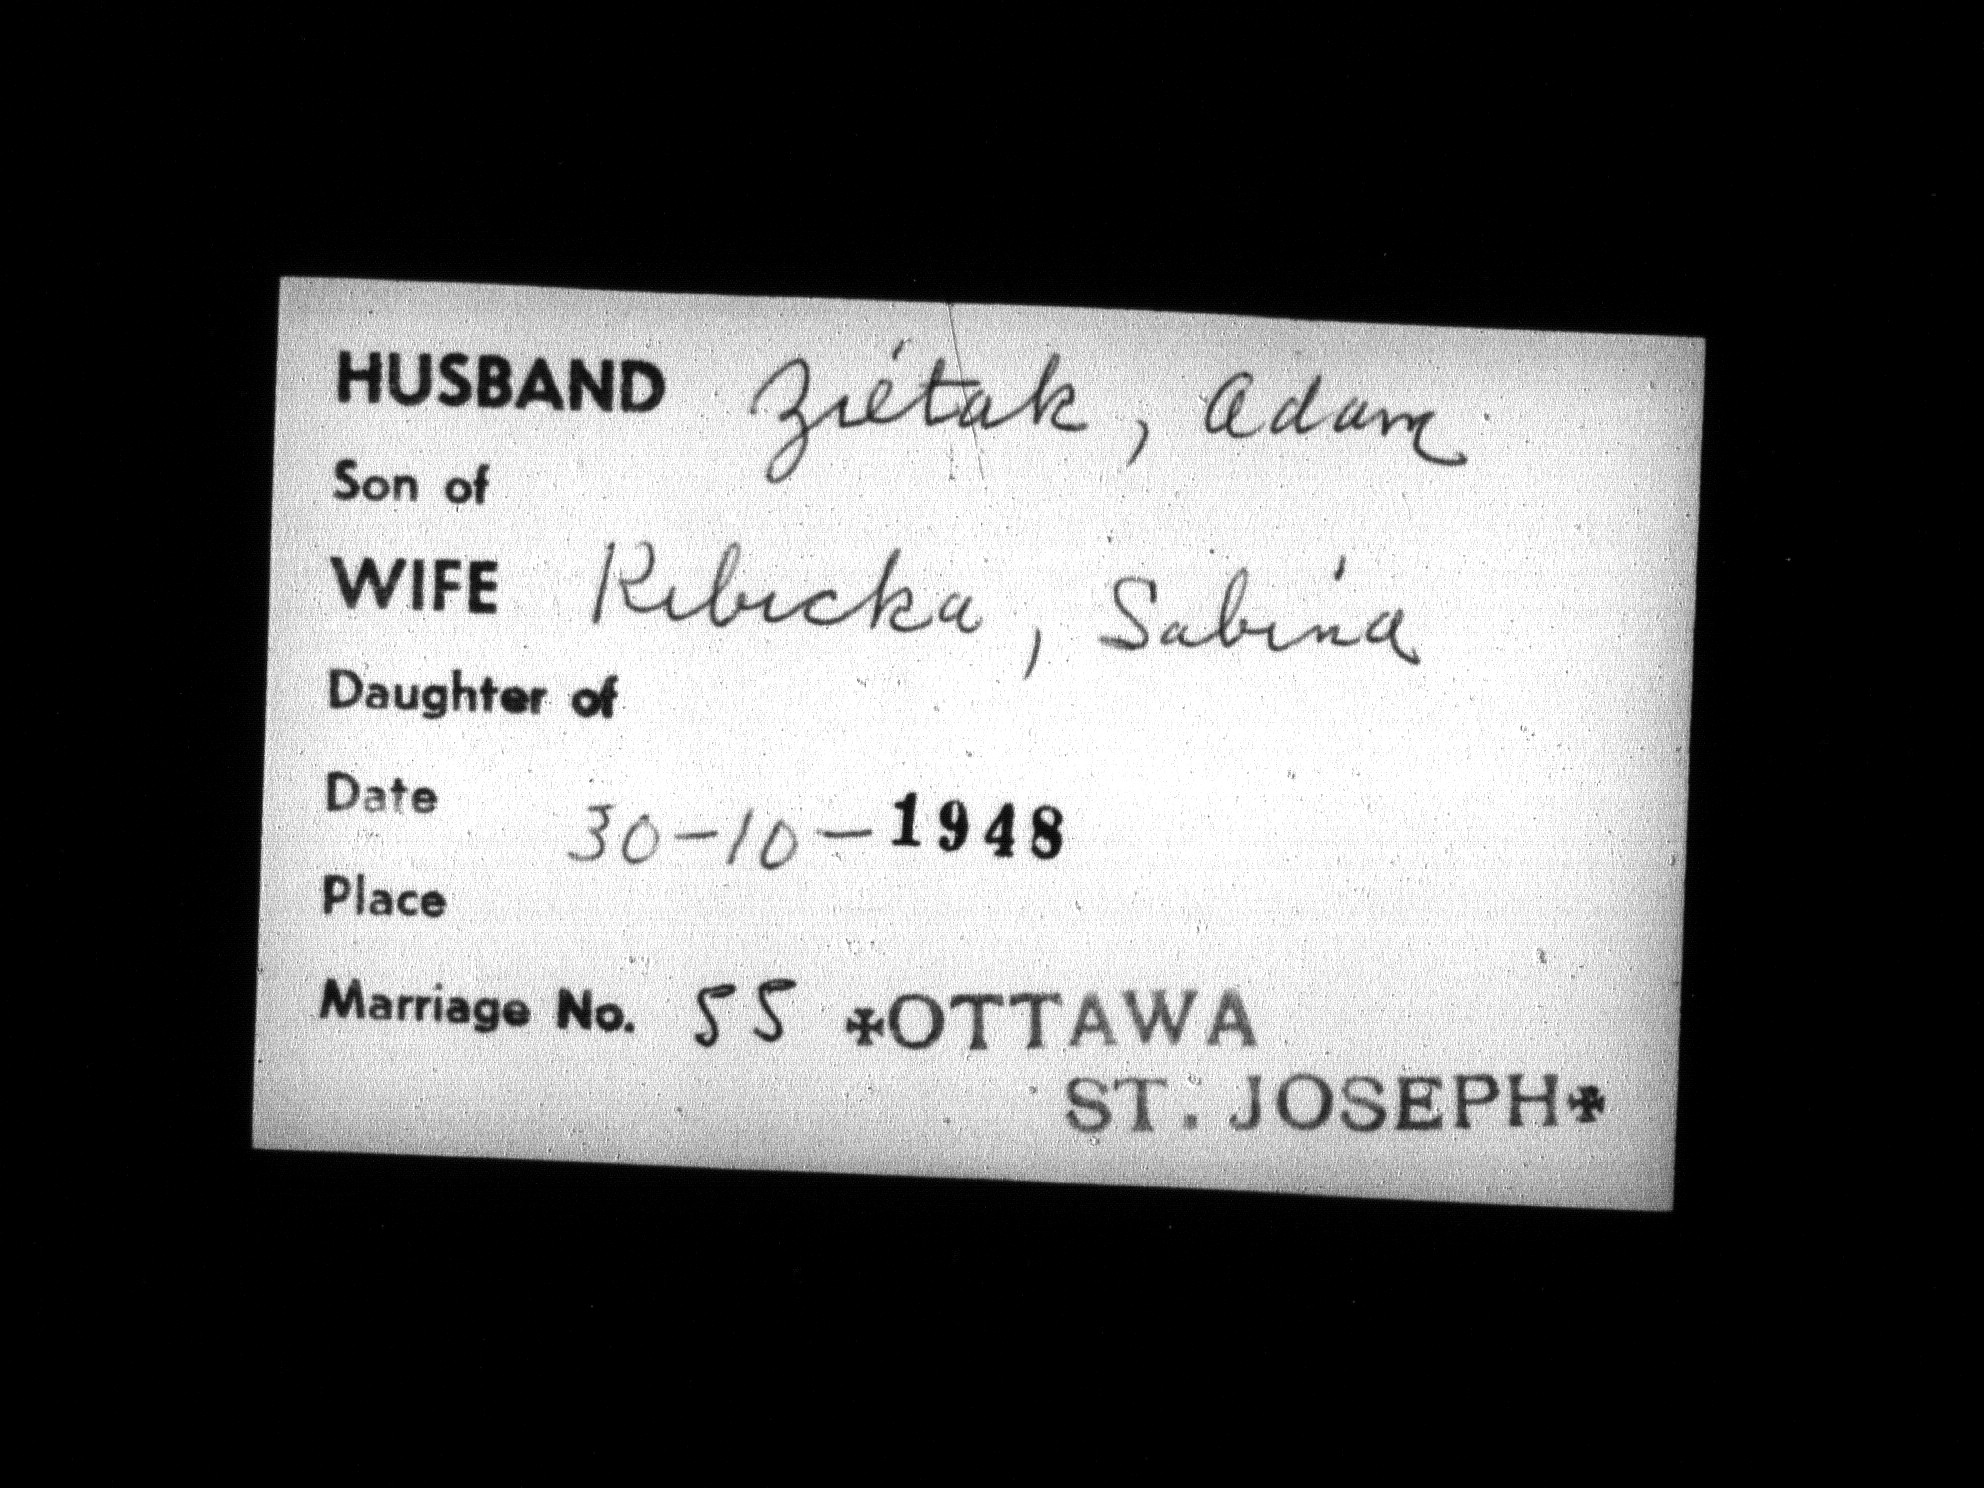 HUSBAND Zietak, Adam
Son of
WIFE Ribicka, Sabina
Daughter of
Date 30-10-1948
Place
Marriage No. 55 ✠OTTAWA
ST. JOSEPH✠